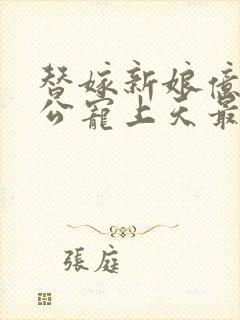 替嫁新娘億
公寵上天最
張庭